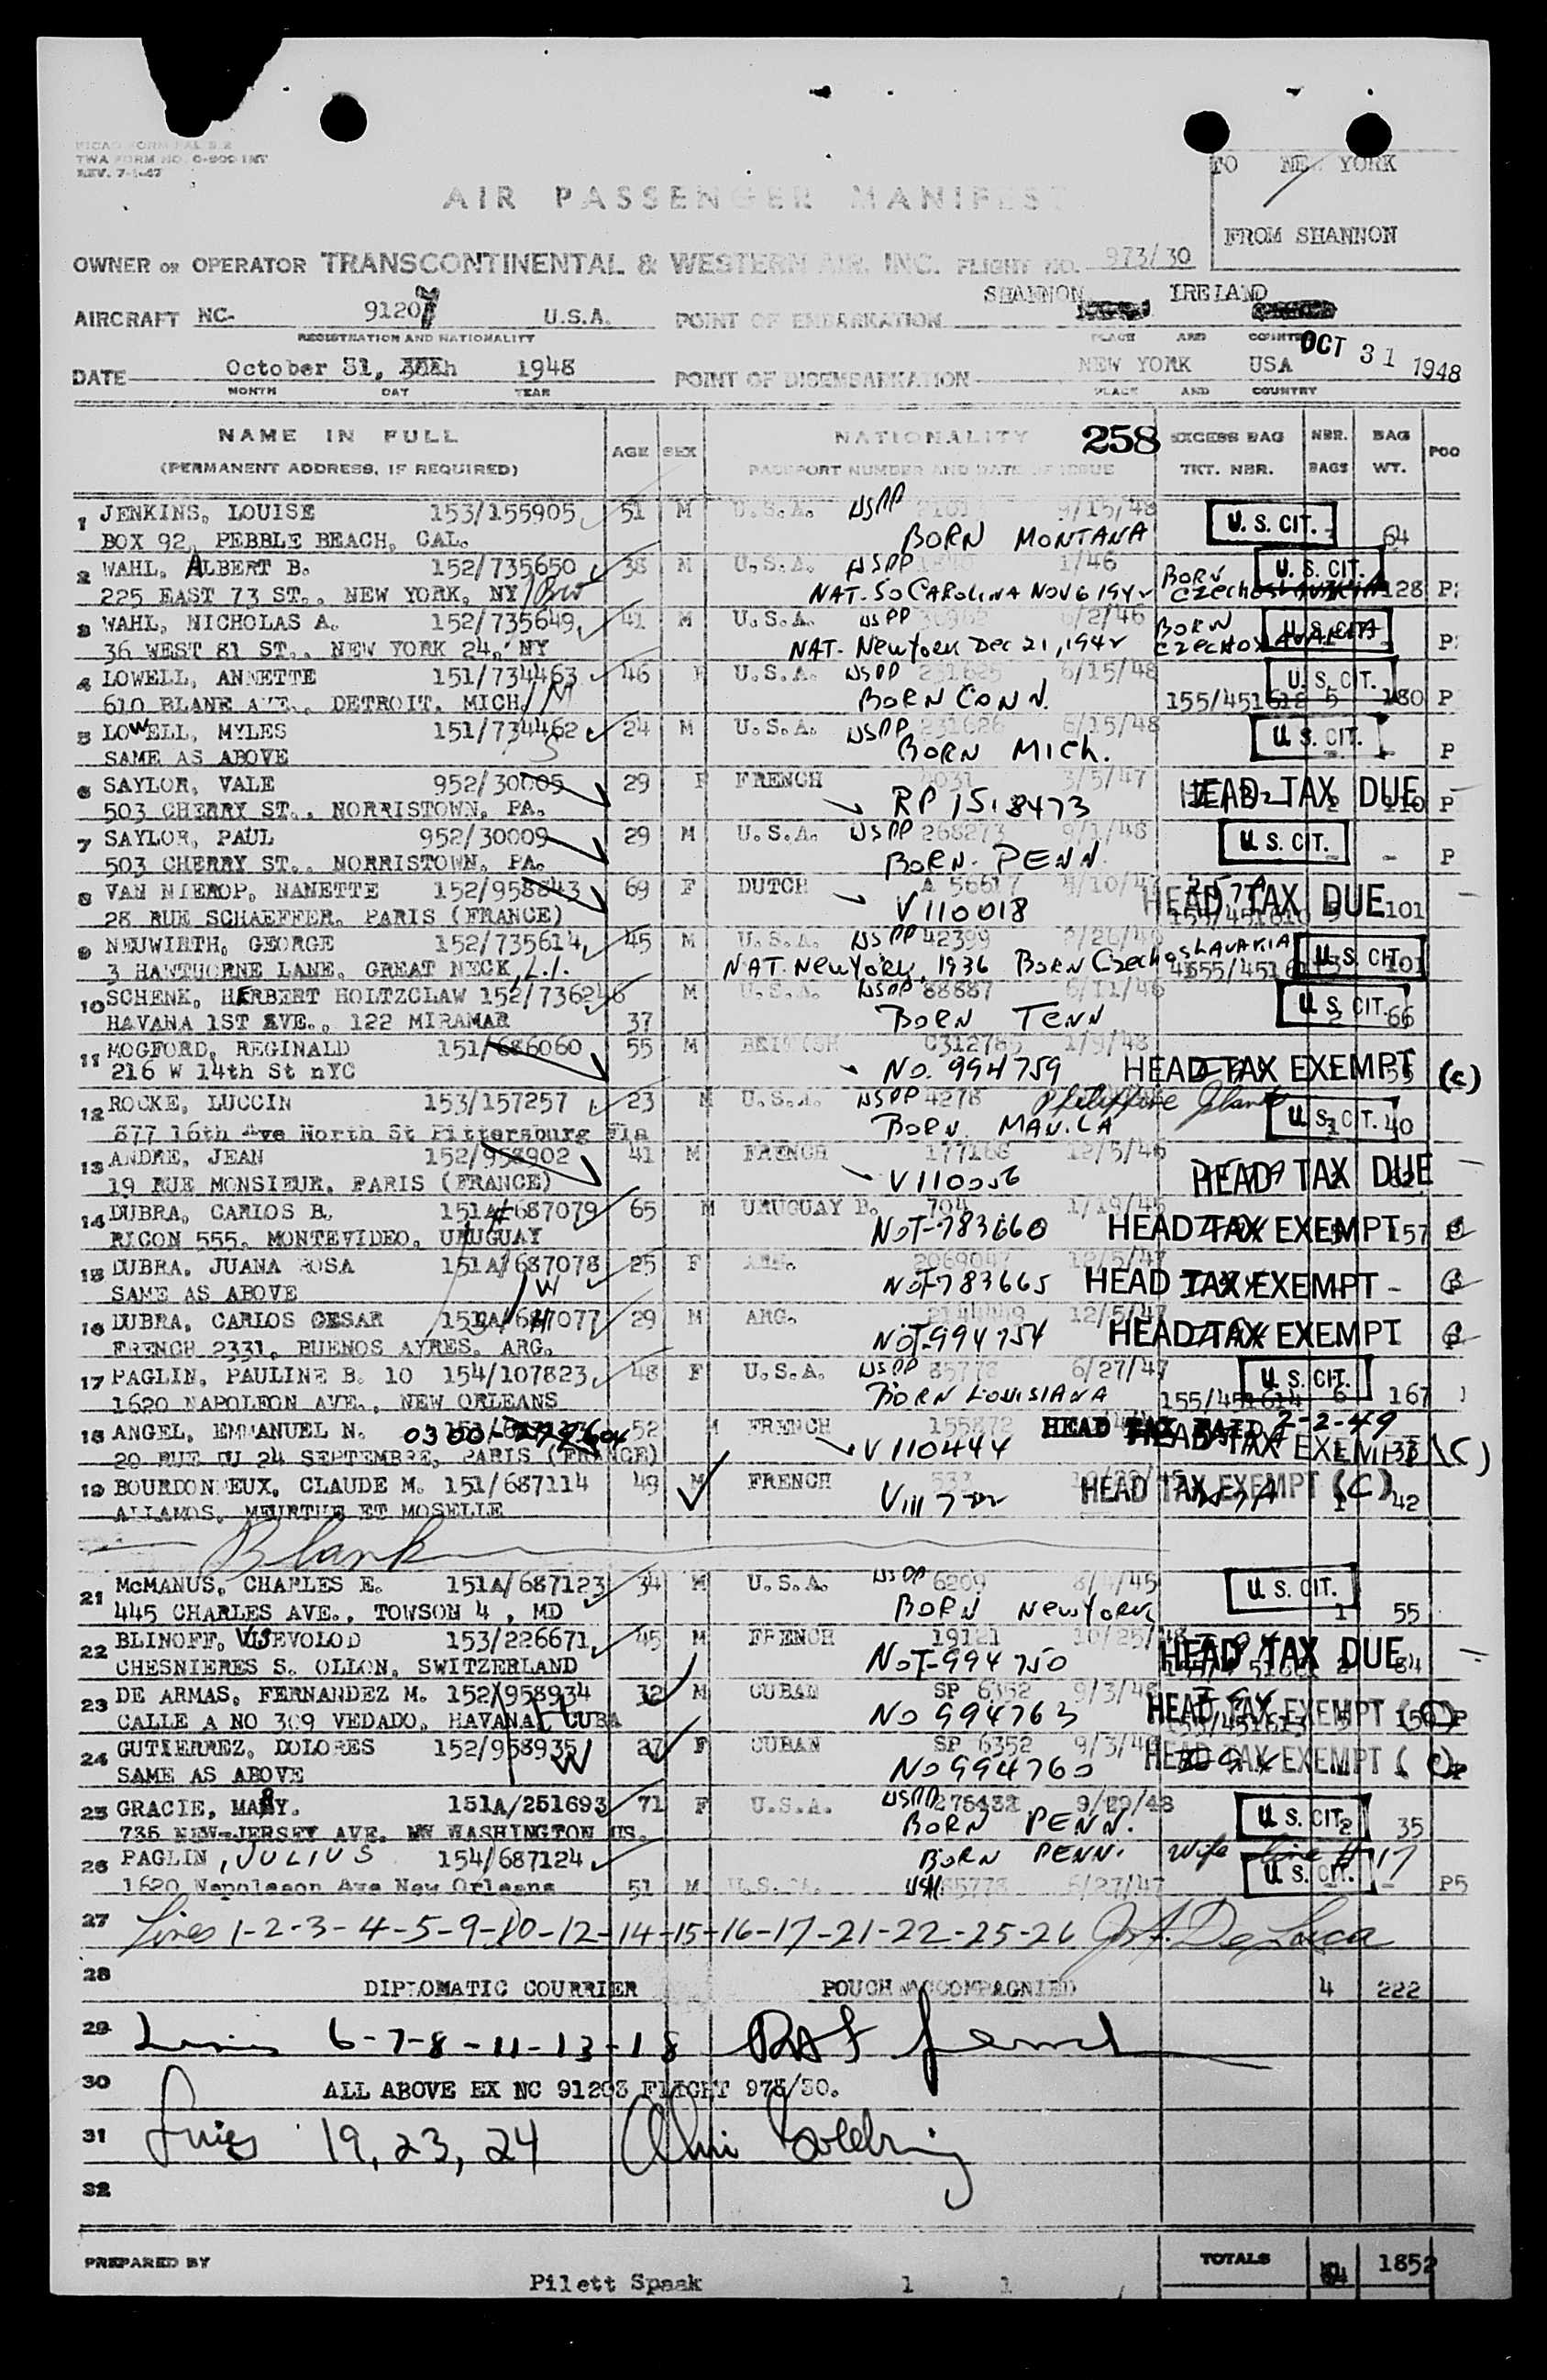 TWA FORM NO. 0-800 INT
REV. 7-1-47
TO NEW YORK
AIR PASSENGER MANIFEST
FROM SHANNON
OWNER OR OPERATOR TRANSCONTINENTAL & WESTERN AIR, INC. FLIGHT NO. 973/30
SHANNON IRELAND
AIRCRAFT NC- 91207 U.S.A. POINT OF EMBARKATION
REGISTRATION AND NATIONALITY PLACE AND COUNTRY
OCT 31 1948
DATE October 31, 1948 POINT OF DISEMBARKATION NEW YORK USA
MONTH DAY YEAR PLACE AND COUNTRY
NAME IN FULL AGE SEX NATIONALITY 258 EXCESS BAG NBR. BAG POO
(PERMANENT ADDRESS, IF REQUIRED) PASSPORT NUMBER AND DATE OF ISSUE TKT. NBR. BAGS WT.
1 JENKINS, LOUISE 153/155905 51 M U.S.A. USPP 9/15/48 U.S. CIT.
BOX 92, PEBBLE BEACH, CAL. BORN MONTANA 64
2 WAHL, ALBERT B. 152/735650 38 M U.S.A. USPP 1/46 BORN U.S. CIT.
225 EAST 73 ST., NEW YORK, NY NAT. SO CAROLINA NOV 6 1942 CZECHOSLOVAKIA 128
3 WAHL, NICHOLAS A. 152/735649 41 M U.S.A. USPP 6/2/46 BORN U.S. CIT.
36 WEST 81 ST., NEW YORK 24, NY NAT. New York Dec 21, 1942 CZECHOSLOVAKIA
4 LOWELL, ANNETTE 151/734463 46 F U.S.A. USPP 231625 6/15/48 U.S. CIT.
610 BLANE AVE., DETROIT, MICH. M BORN CONN. 155/451612 5 180 P
5 LOWELL, MYLES 151/734462 24 M U.S.A. USPP 231626 6/15/48 U.S. CIT.
SAME AS ABOVE S BORN MICH. P
6 SAYLOR, VALE 952/30005 29 F FRENCH 3/5/47 HEAD TAX DUE
503 CHERRY ST., NORRISTOWN, PA. RP 1518473 110 P
7 SAYLOR, PAUL 952/30009 29 M U.S.A. USPP 268273 9/1/48 U.S. CIT.
503 CHERRY ST., NORRISTOWN, PA. BORN PENN. - P
8 VAN NIEROP, NANETTE 152/958843 69 F DUTCH A 56617 4/10/47 HEAD TAX DUE
28 RUE SCHAEFFER, PARIS (FRANCE) V110018 155/451610 101
9 NEUWIRTH, GEORGE 152/735614 45 M U.S.A. USPP 42399 U.S. CIT.
3 HAWTHORNE LANE, GREAT NECK, L.I. NAT. New York, 1936 BORN Czechoslavakia 101
10 SCHENK, HERBERT HOLTZCLAW 152/736246 M U.S.A. USPP 88887 6/11/46 U.S. CIT.
HAVANA 1ST AVE., 122 MIRAMAR 37 BORN TENN 66
11 MOGFORD, REGINALD 151/686060 55 M BRITISH C312785 1/9/48 HEAD TAX EXEMPT (C)
216 W 14th St nYC NO. 994759
12 ROCKE, LUCCIN 153/157257 23 M U.S.A. USPP 4278 Philippine Islands U.S. CIT.
877 16th Ave North St Pittersburg Fla BORN MANILA 40
13 ANDRE, JEAN 152/958902 41 M FRENCH 177168 12/5/46 HEAD TAX DUE
19 RUE MONSIEUR, PARIS (FRANCE) V110056
14 DUBRA, CARLOS B. 151A/687079 65 M URUGUAY B. 704 1/19/46 HEAD TAX EXEMPT
RICON 555, MONTEVIDEO, URUGUAY NOT-783660 157
15 DUBRA, JUANA ROSA 151A/687078 25 F ARG. 2069047 12/5/47 HEAD TAX EXEMPT
SAME AS ABOVE W NOT-783665
16 DUBRA, CARLOS CESAR 151A/687077 29 M ARG. 2144449 12/5/47 HEAD TAX EXEMPT
FRENCH 2331, BUENOS AYRES, ARG. NOT-994754
17 PAGLIN, PAULINE B. 10 154/107823 48 F U.S.A. USPP 85778 6/27/47 U.S. CIT.
1620 NAPOLEON AVE., NEW ORLEANS BORN LOUISIANA 155/451614 6 167
18 ANGEL, EMMANUEL N. 0300-272604 52 M FRENCH 155872 HEAD TAX PAID 2-2-49
20 RUE DU 24 SEPTEMBRE, PARIS (FRANCE) V110444 HEAD TAX EXEMPT (C)
19 BOURDONNEUX, CLAUDE M. 151/687114 49 M FRENCH HEAD TAX EXEMPT (C)
ALLAMOS, MEURTHE ET MOSELLE 1 42
Blank
21 McMANUS, CHARLES E. 151A/687123 34 M U.S.A. USPP 6209 U.S. CIT.
445 CHARLES AVE., TOWSON 4, MD BORN New York 1 55
22 BLINOFF, VSEVOLOD 153/226671 45 M FRENCH 19121 10/25/48 HEAD TAX DUE
CHESNIERES S. OLLON, SWITZERLAND NOT-994750
23 DE ARMAS, FERNANDEZ M. 152/958934 32 M CUBAN SP 6352 9/3/48 HEAD TAX EXEMPT (C)
CALLE A NO 309 VEDADO, HAVANA, CUBA H NO 994763 155/451613
24 GUTIERREZ, DOLORES 152/958935 27 F CUBAN SP 6352 9/3/48 HEAD TAX EXEMPT (C)
SAME AS ABOVE W NO 994760
25 GRACIE, MARY. 151A/251693 71 F U.S.A. USPP 276432 9/29/48 U.S. CIT.
735 NEW-JERSEY AVE. NW WASHINGTON US. BORN PENN. 2 35
26 PAGLIN, JULIUS 154/687124 BORN PENN. Wife Line # 17
1620 Napoleaon Ave New Orleans 51 M U.S.A. 85778 6/27/47 U.S. CIT. - P5
27 Lines 1-2-3-4-5-9-10-12-14-15-16-17-21-22-25-26 Jos A. De Lucca
28 DIPLOMATIC COURRIER POUCH ACCOMPAGNIED 4 222
29 Lines 6-7-8-11-13-18
30 ALL ABOVE EX NC 91203 FLIGHT 973/30.
31 Lines 19, 23, 24
32
PREPARED BY TOTALS 1852
Pilett Spaak 1 1